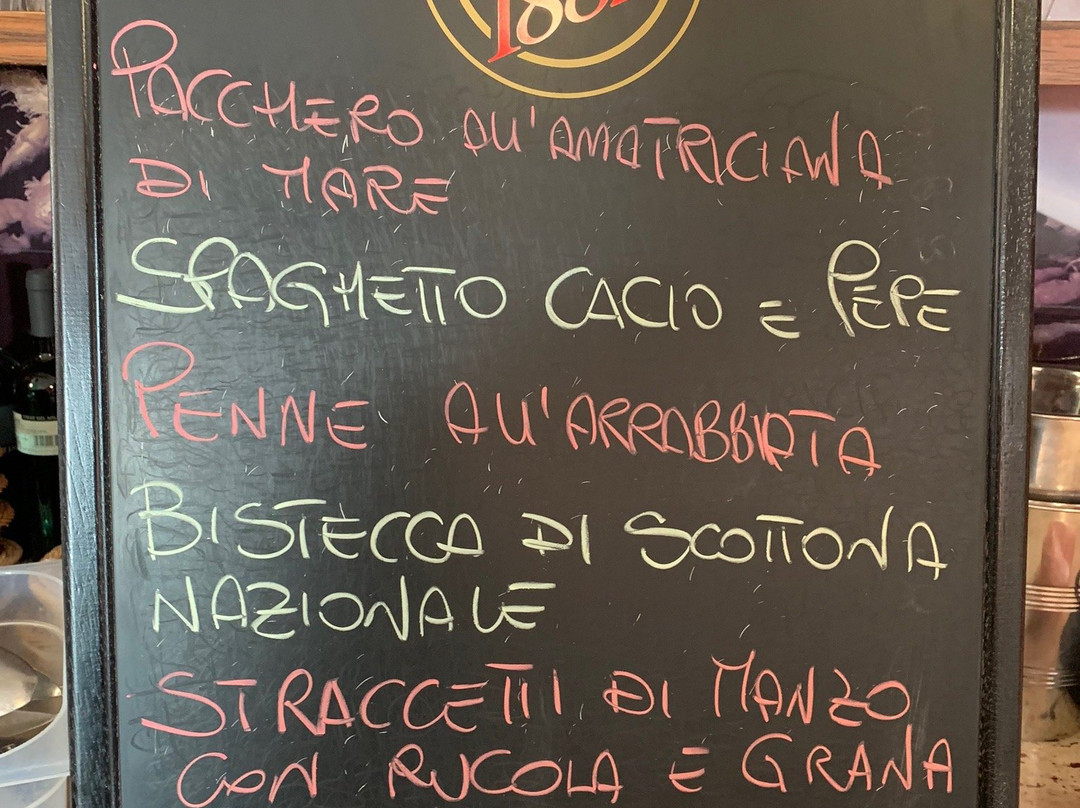 PACCHERO ALL'AMATRICIANA
DI MARE
SPAGHETTO CACIO E PEPE
PENNE ALL'ARRABBIATA
BISTECCA DI SCOTTONA
NAZIONALE
STRACCETTI DI MANZO
CON RUCOLA E GRANA